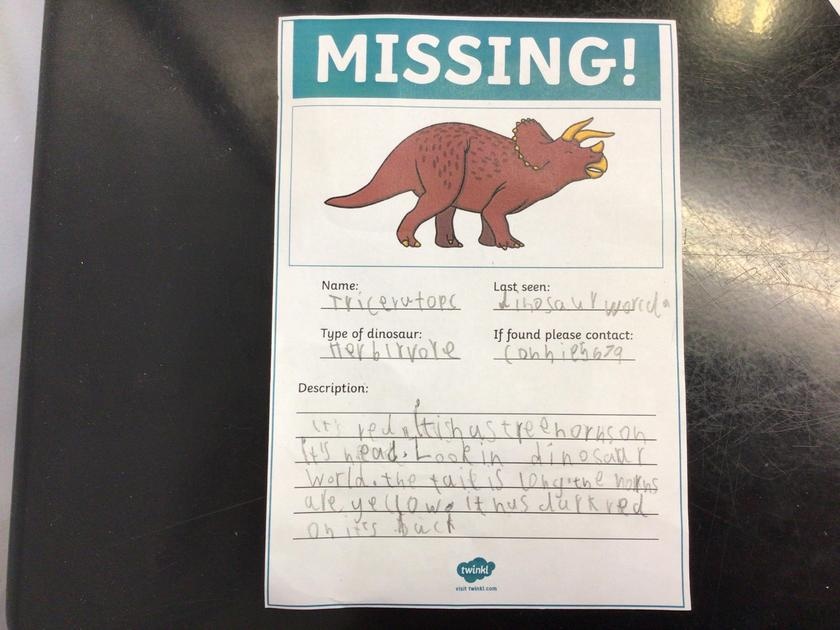 MISSING!
Name: Triceratops
Last seen: dinosaur world.
Type of dinosaur: Herbirvore
If found please contact:
Description:
It's red. It is has tree horns on
it's head. Look in dinosaur
world. the tail is long. the horns
are yellow. it has dark red
on it's back
twinkl
visit twinkl.com